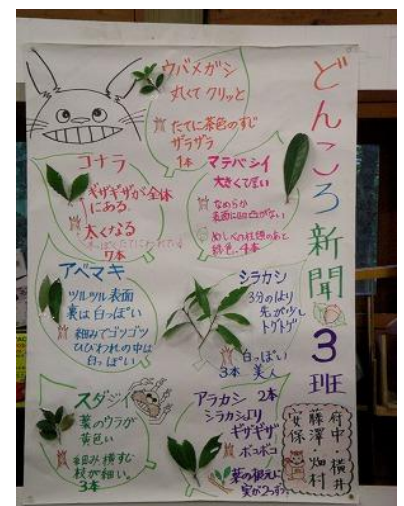 どんころ新聞
3班
ウバメガシ
丸くて クリッと
たてに茶色のすじ
ザラザラ
1本
コナラ
ギザギザが全体
にある。
太くなる
7本
マテバシイ
大きくて堅い
なめらか
表面に凹凸がない
4本
アベマキ
ツルツル表面
裏は白っぽい
粗みでゴツゴツ
ひびわれの中は
白っぽい
シラカシ
3分の1より
先が少し
トゲトゲ
白っぽい
3本 美人
スダジイ
葉のウラが
黄色い
粗み横すじ
枝が細い。
3本
アラカシ 2本
シラカシより
ギザギザ
ボコボコ
葉の根元に
実が2つずつ
府中・横井
藤澤・畑村
安保